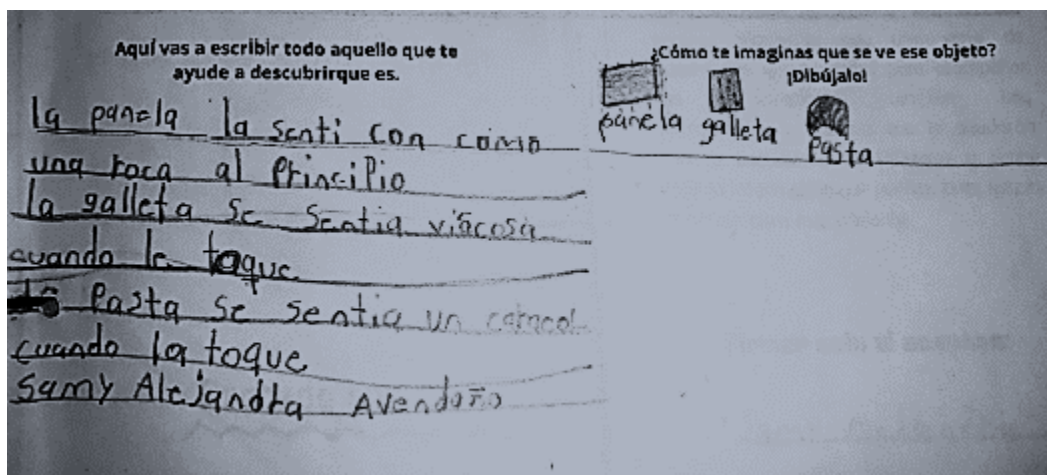 Aquí vas a escribir todo aquello que te
ayude a descubrirque es.
la panela la senti con como
una roca al Principio
la galleta se sentia viscosa
cuando le toque
Pasta se sentia un caracol
cuando la toque
Samy Alejandra Avendaño
¿Cómo te imaginas que se ve ese objeto?
¡Dibújalo!
panela galleta
Pasta